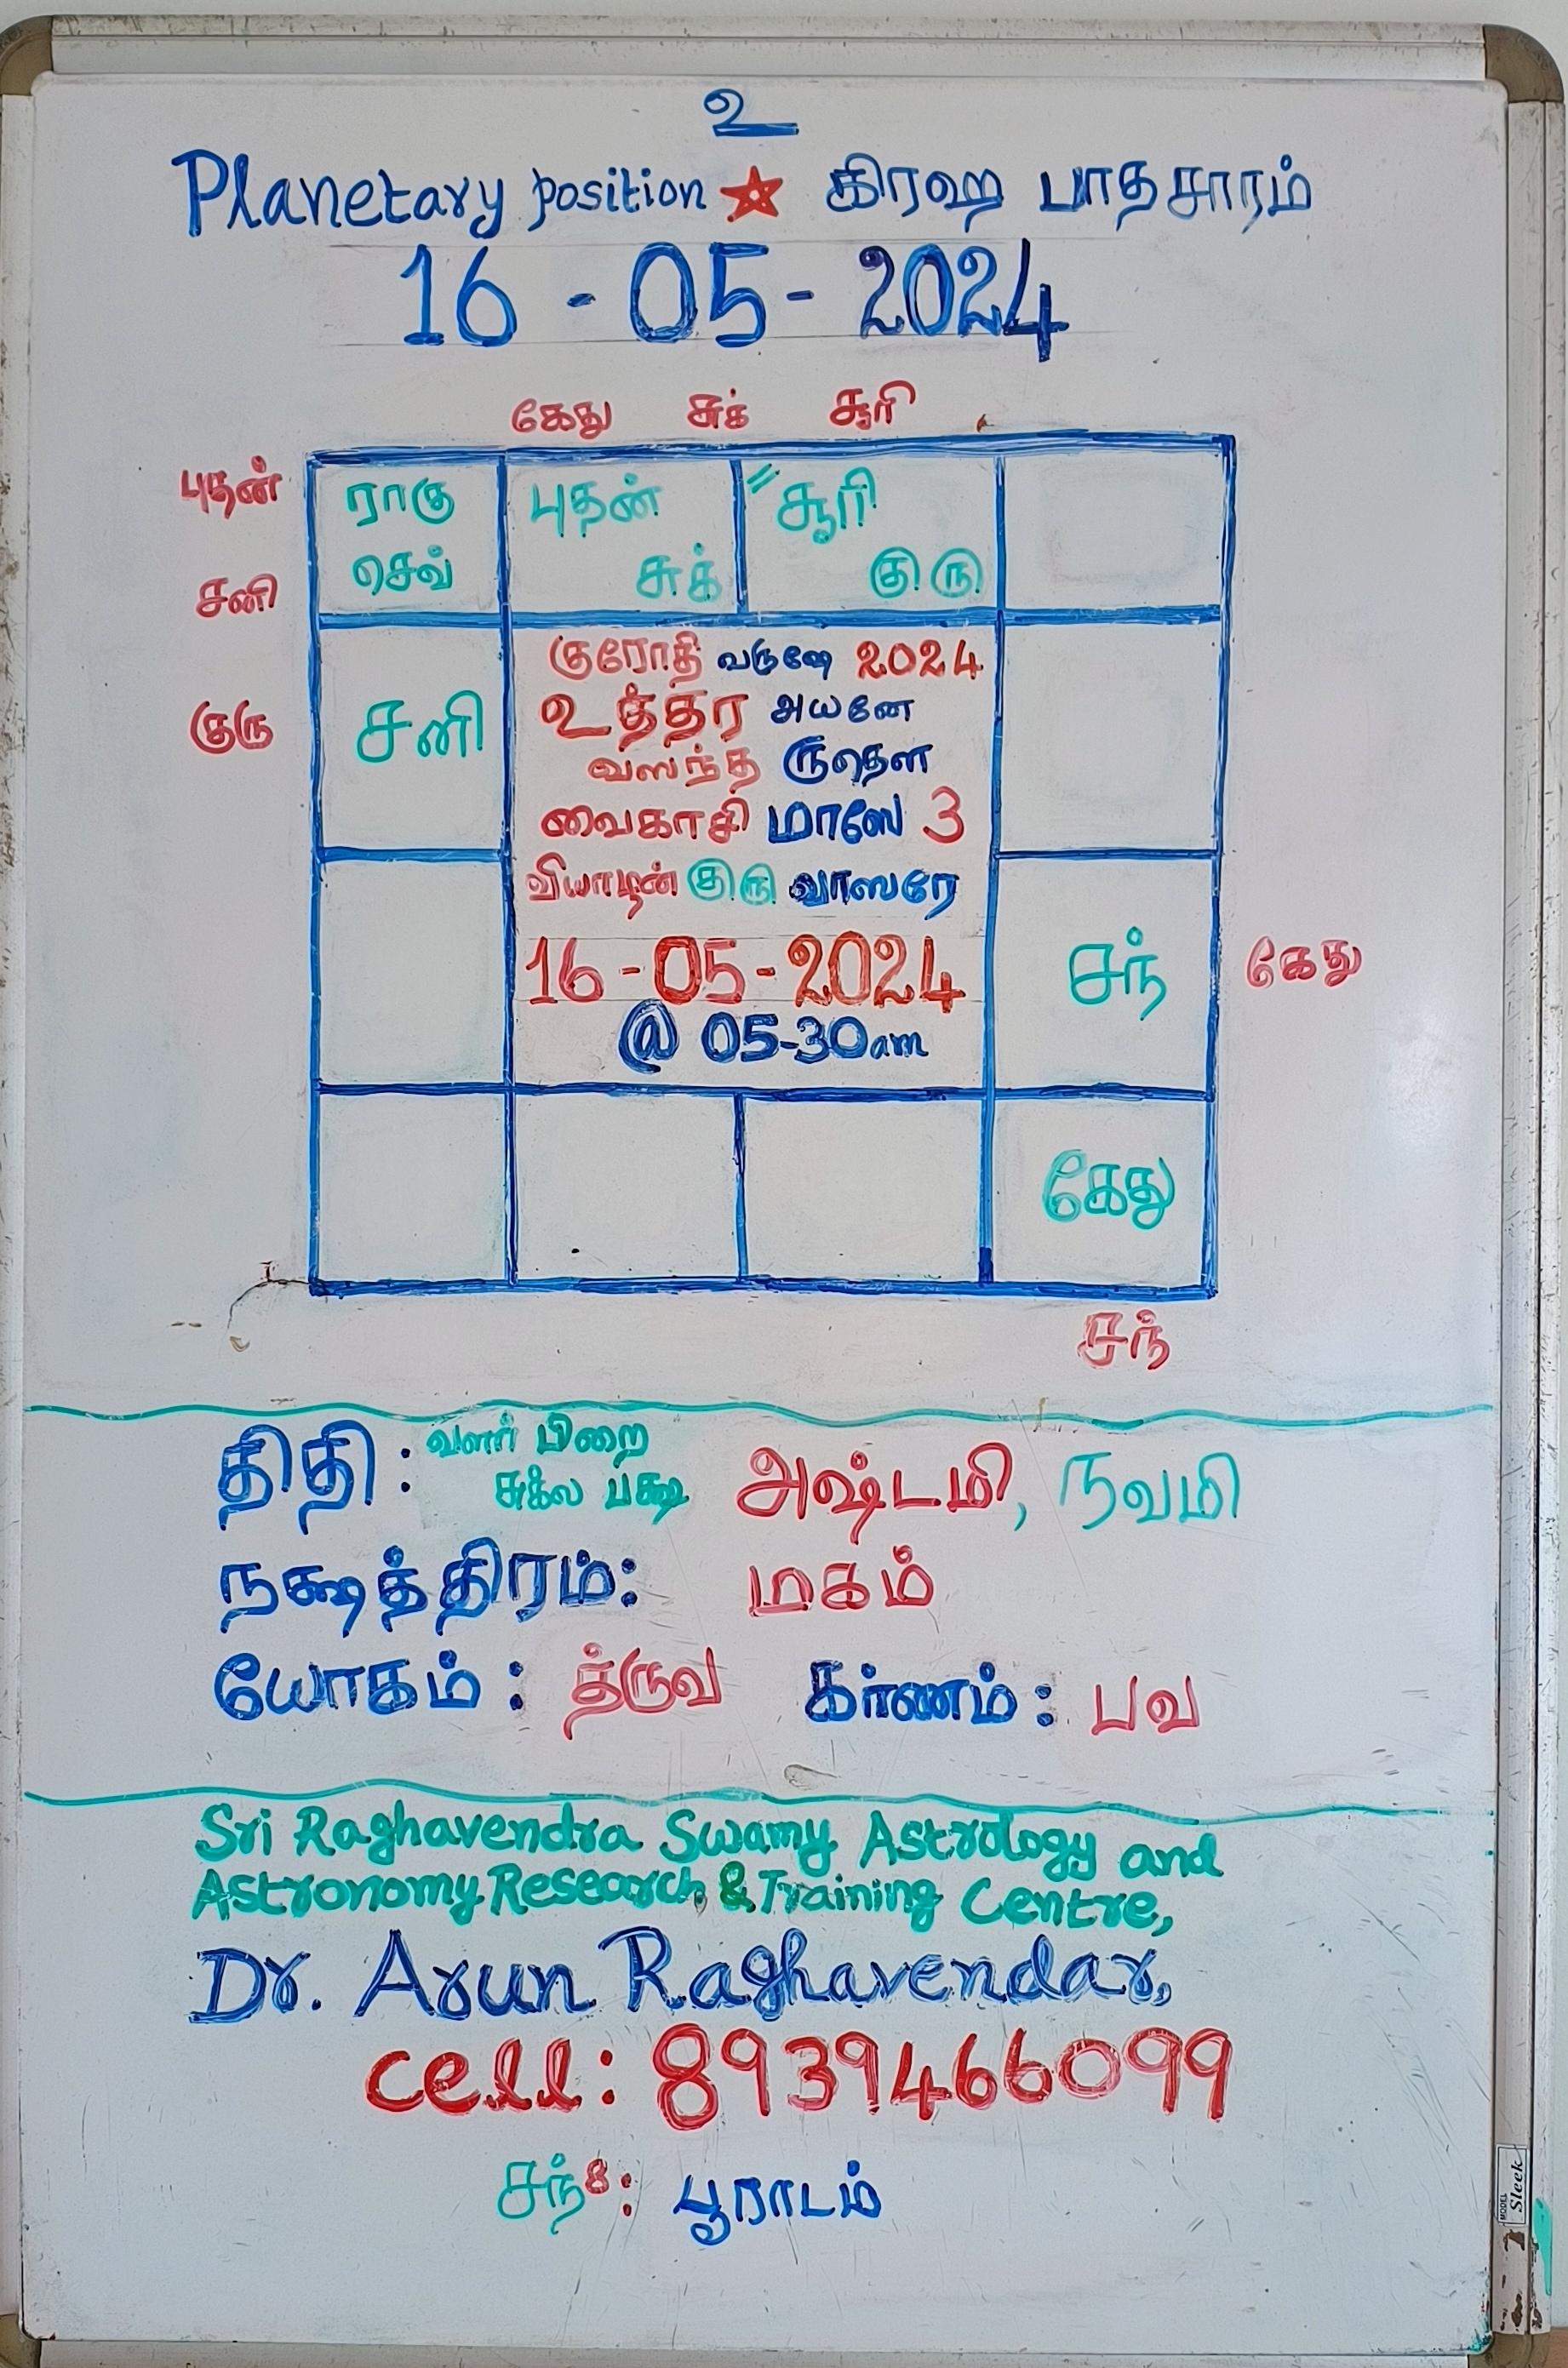 உ
Planetary position ★ கிரஹ பாதசாரம்
16 - 05 - 2024
கேது சுக் சூரி
புதன் ராகு புதன் "சூரி
சனி செவ் சுக் குரு
குரோதி வருஷே 2024
குரு சனி உத்தர அயனே
வஸந்த ருதௌ
வைகாசி மாஸே 3
வியாழன் குரு வாஸரே
16 - 05 - 2024 சந் கேது
@ 05-30am
கேது
சந்
திதி : வளர் பிறை
சுக்ல பக்ஷ அஷ்டமி, நவமி
நக்ஷத்திரம்: மகம்
யோகம் : த்ருவ கர்ணம் : பவ
Sri Raghavendra Swamy Astrology and
Astronomy Research & Training Centre,
Dr. Arun Raghavendar,
cell: 8939466099
சந் 8: பூராடம்
MODEL Sleek